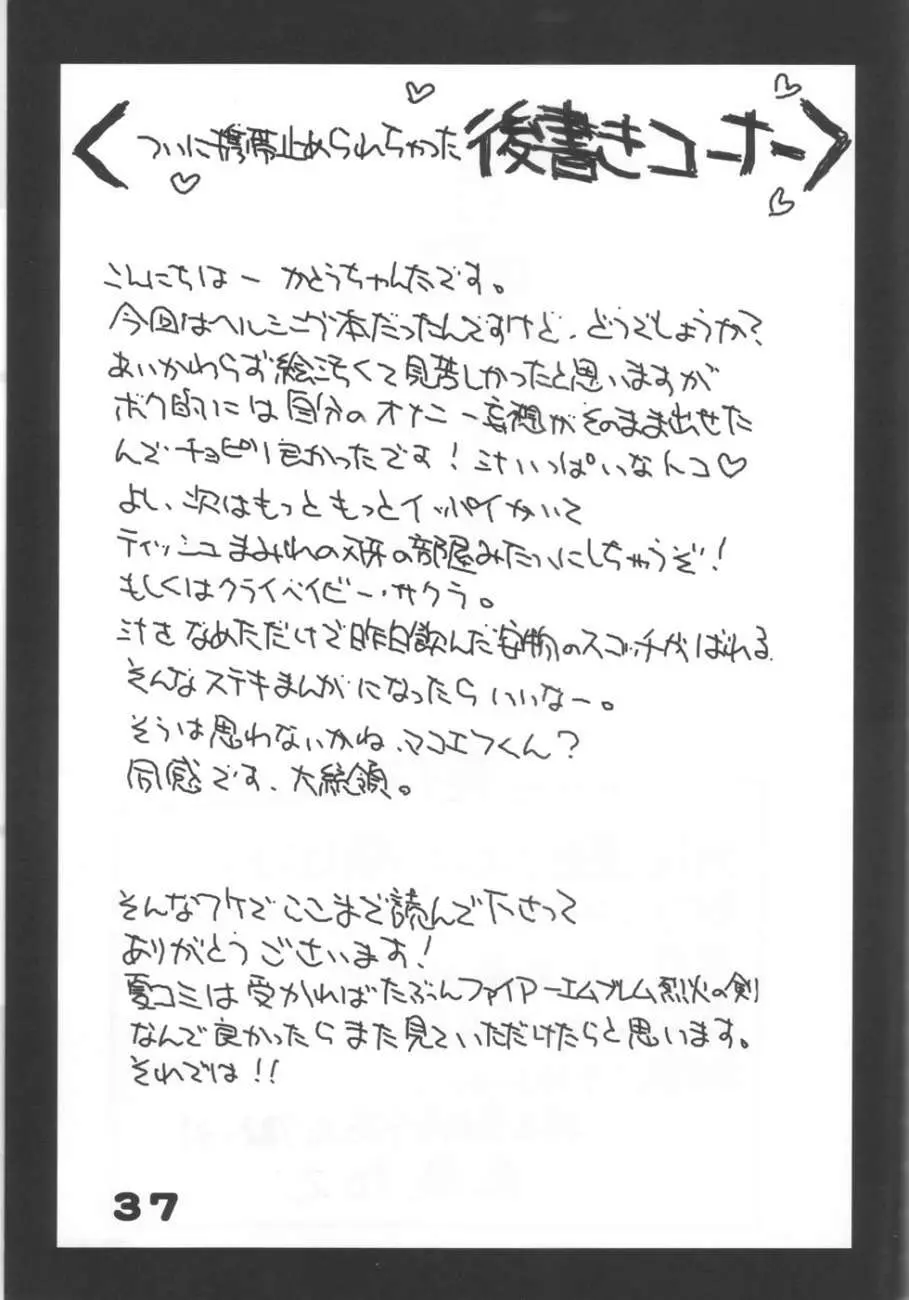 <ついに携帯止められちゃった後書きコーナー>
こんにちはー かとうちゃんたです。
今回はヘルシング本だったんですけど、どうでしょうか?
あいかわらず絵汚くて見苦しかったと思いますが
ボク的には自分のオナニー妄想がそのまま出せた
んでチョピリ良かったです!汁いっぱいなんコ♡
よし、次はもっともっとイッパイかいて
ティッシュまみれの の部屋みたいにしちゃうぞ!
もしくはクライベイビー・サクラ。
汁をなめただけで昨日飲んだ安物のスコッチがばれる
そんなステキまんがになったらいいなー。
そうは思わないかね、マコエフくん?
同感です、大統領。
そんなワケでここまで読んで下さって
ありがとうございます!
夏コミは受かればたぶんファイアーエムブレム烈火の剣
なんで良かったらまた見ていただけたらと思います。
それでは!!
37